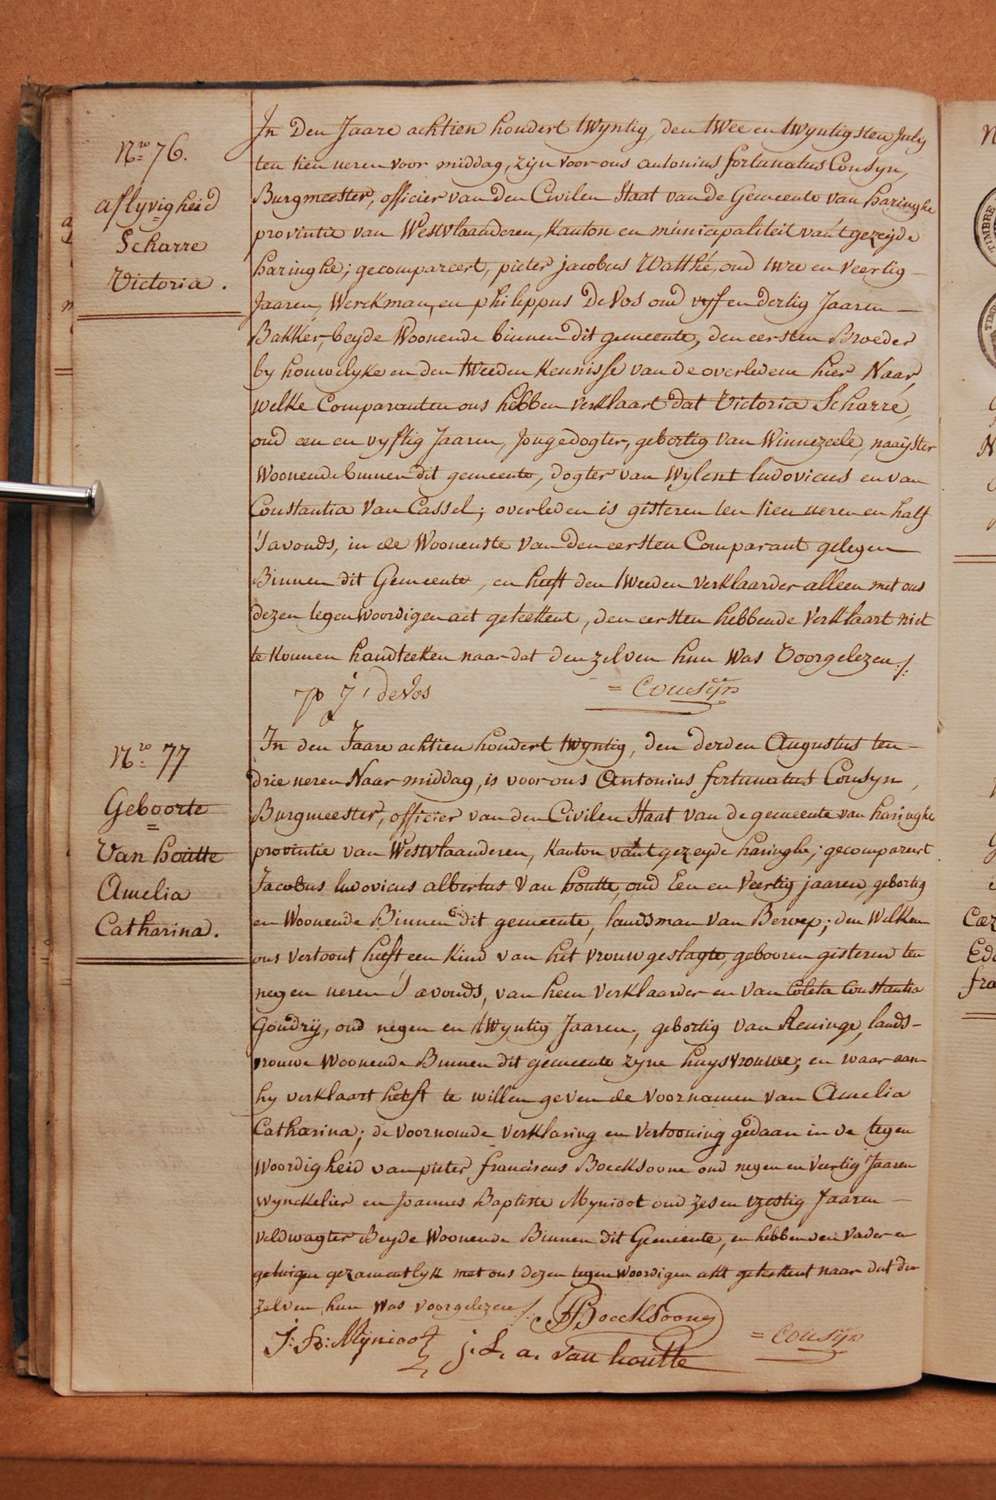 Nro 76.
aflyvigheid
Scharre
Victoria.
In Den Jaare achtien hondert twyntig, den twee en twyntigsten July
ten tien ueren voor middag, zyn voor ons antonius fortunatus Cousyn,
Burgmeester, officier van den Civilen Staat van de Gemeente van haringhe
provintie van Westvlaanderen, Kanton en municipaliteit van 't gezeyde
haringhe; gecompareert, pieter jacobus Watthé, oud twee en veertig
Jaaren, Werckman, en philippus De Vos oud vyf en dertig Jaaren
Bakker, beyde Woonende binnen dit gemeente, den eersten Broeder
by houwelyke en den tweeden Kennisse van de overledene hier Naar,
welke Comparanten ons hebben verklaart dat Victoria Scharre,
oud een en vyftig Jaaren, Jongedogter, gebortig van Winnezeele, naaijster
Woonende binnen dit gemeente, dogter van Wylent ludovicus en van
Constantia Van Cassel; overleden is gisteren ten tien ueren en half
's avonds, in de Woonenste van den eersten Comparant gelegen
Binnen dit Gemeente, en heeft den tweeden verklaarder alleen met ons
dezen tegenwoordigen act geteekent, den eersten hebbende verklaart niet
te konnen handteeken naar dat den zelven hun was voorgelezen ./.
p j. de Vos
= Cousijn
Nro 77
Geboorte
Van houtte
Amelia
Catharina.
In den Jaare achtien hondert twyntig, den derden Augustus ten
drie ueren Naar middag, is voor ons Antonius fortunatus Cousyn,
Burgmeester, officier van den Civilen Staat van de gemeente van haringhe
provintie van Westvlaanderen, Kanton van 't gezeyde haringhe; gecompareert
Jacobus ludovicus albertus Van houtte, oud Een en Veertig jaaren, gebortig
en Woonende Binnen dit gemeente, landsman van Beroep; den Welken
ons vertoont heeft een Kind van het vrouw geslagte gebooren gisteren ten
negen ueren 'S avonds, van hem verklaarder en van Coleta Constantia
Goudrij, oud negen en twyntig Jaaren, gebortig van Reninge, lands-
vrouwe woonende Binnen dit gemeente zyne huysvrouwe; en waar aan
hy verklaart heeft te willen geven de voornamen van Amelia
Catharina; de voornomde verklaring en vertooning gedaan in de tegen
Woordigheid van pieter franciscus Boecksoone oud negen en veertig Jaaren
wynckelier en Joannes Baptiste Mynioot oud zes en vzestig Jaaren
veldwagter Beyde Woonende Binnen dit Gemeente, en hebben den vader en
getuigen gezamentlyk met ons dezen tegenwoordigen akt geteekent naar dat den
zelven hun was voorgelezen ./.
PBoecksoone
J: B: Mijnioot
j. L. a. van houtte
= Cousijn
TIMBRE
Cæz
Edo
fra